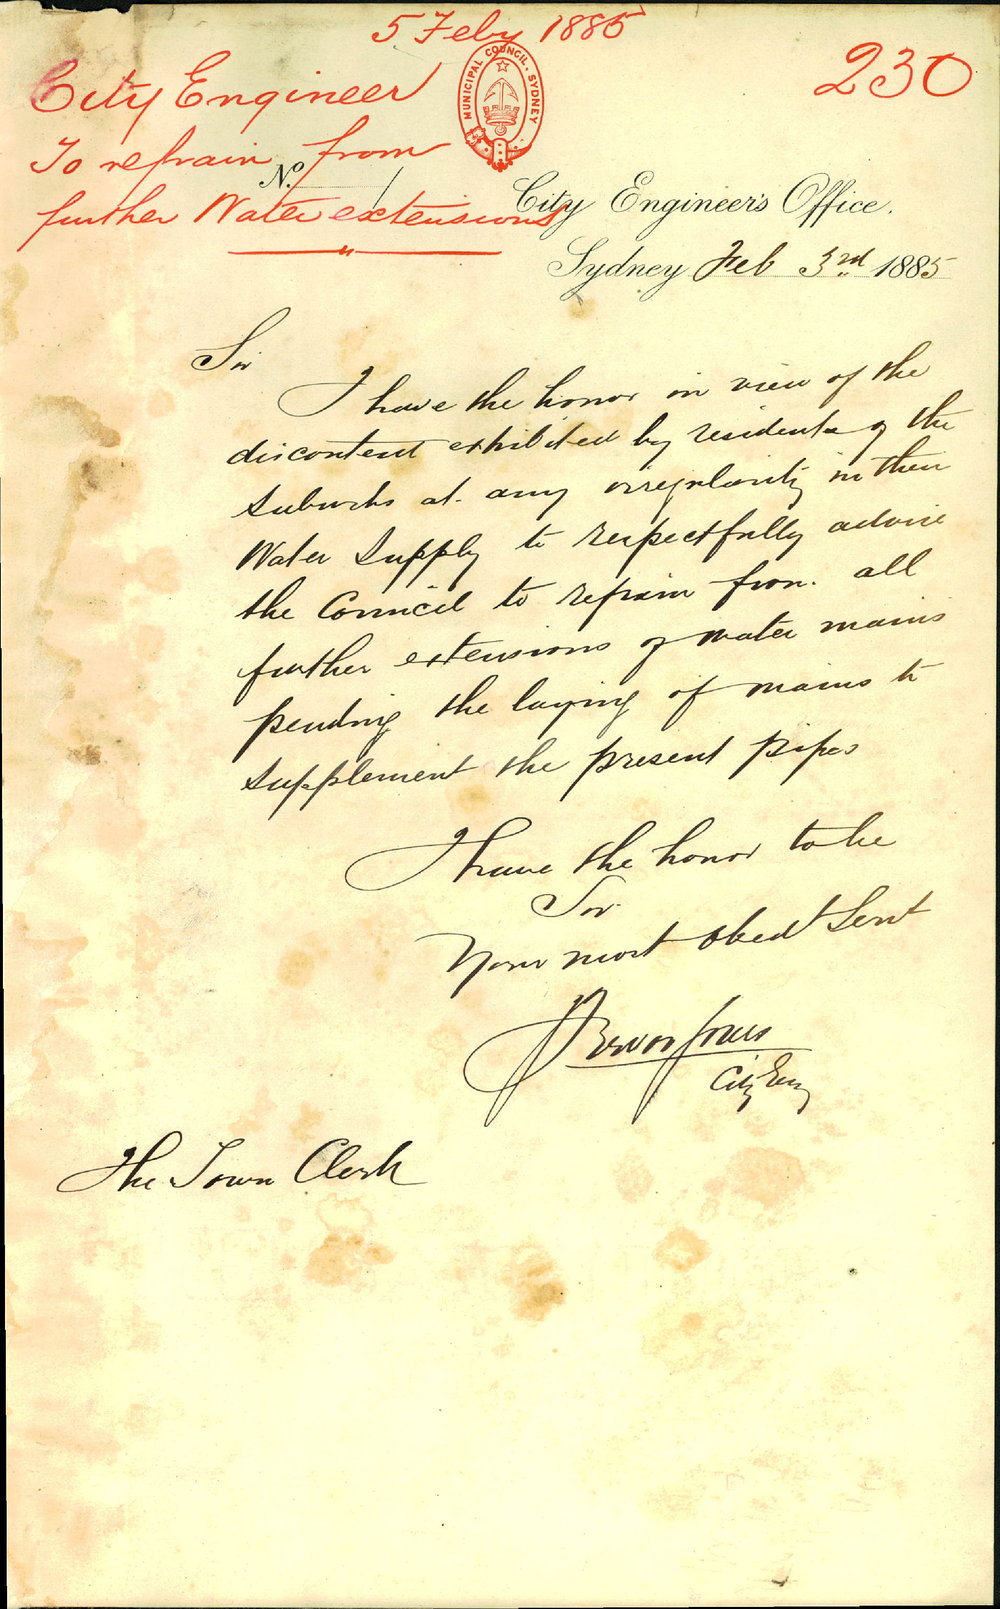 5 Feby 1885
230
City Engineer
To refrain from
further Water extensions
MUNICIPAL COUNCIL. SYDNEY
No.
City Engineer's Office.
Sydney Feb 3rd 1885
Sir
I have the honor in view of the
discontent exhibited by residents of the
suburbs at any irregularity in their
Water Supply to respectfully advise
the Council to refrain from all
further extensions of water mains
pending the laying of mains to
supplement the present pipes
I have the honor to be
Sir
Your most obedt Servt
Trevor Jones
City Eng
The Town Clerk